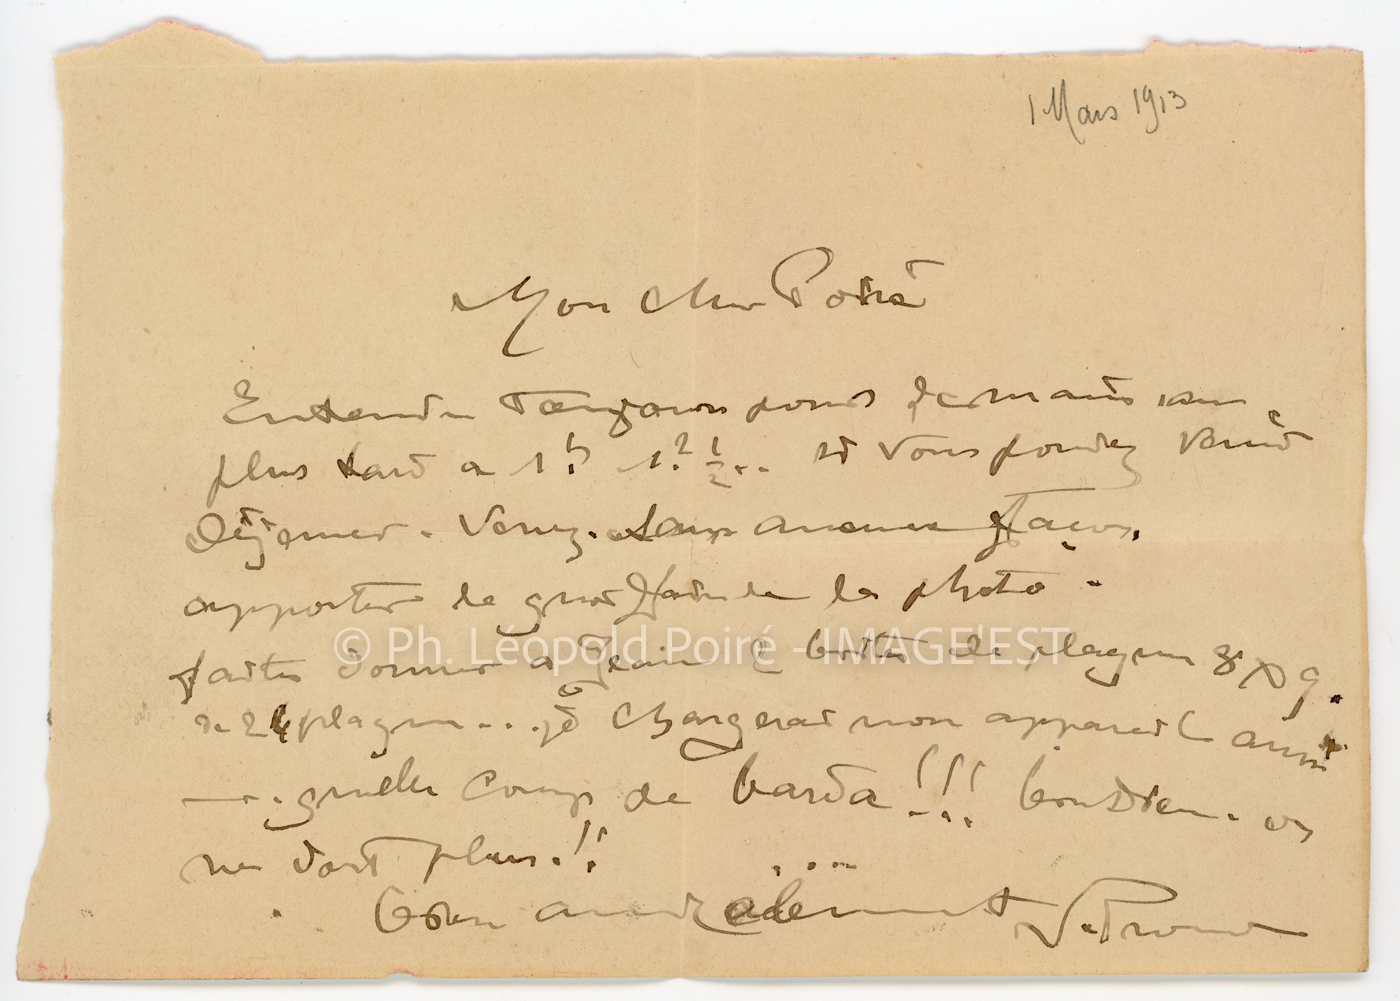 1 Mars 1913
Mon cher Poiré
Entendu toujours pour demain au
plus tard a 1h 1h ½... si vous pouvez venir
Déjeuner. Venez. sans aucune façon,
apporter le la photo.
faites donner a Jean 2 boites de plaques 9 x
de 24 plaques... je chargerai mon appareil aussi
— . quelle coup de barda!!! bon Dieu. on
ne dort plus.!!
bien amicalement V. Prouvé
© Ph. Léopold Poiré - IMAGE'EST